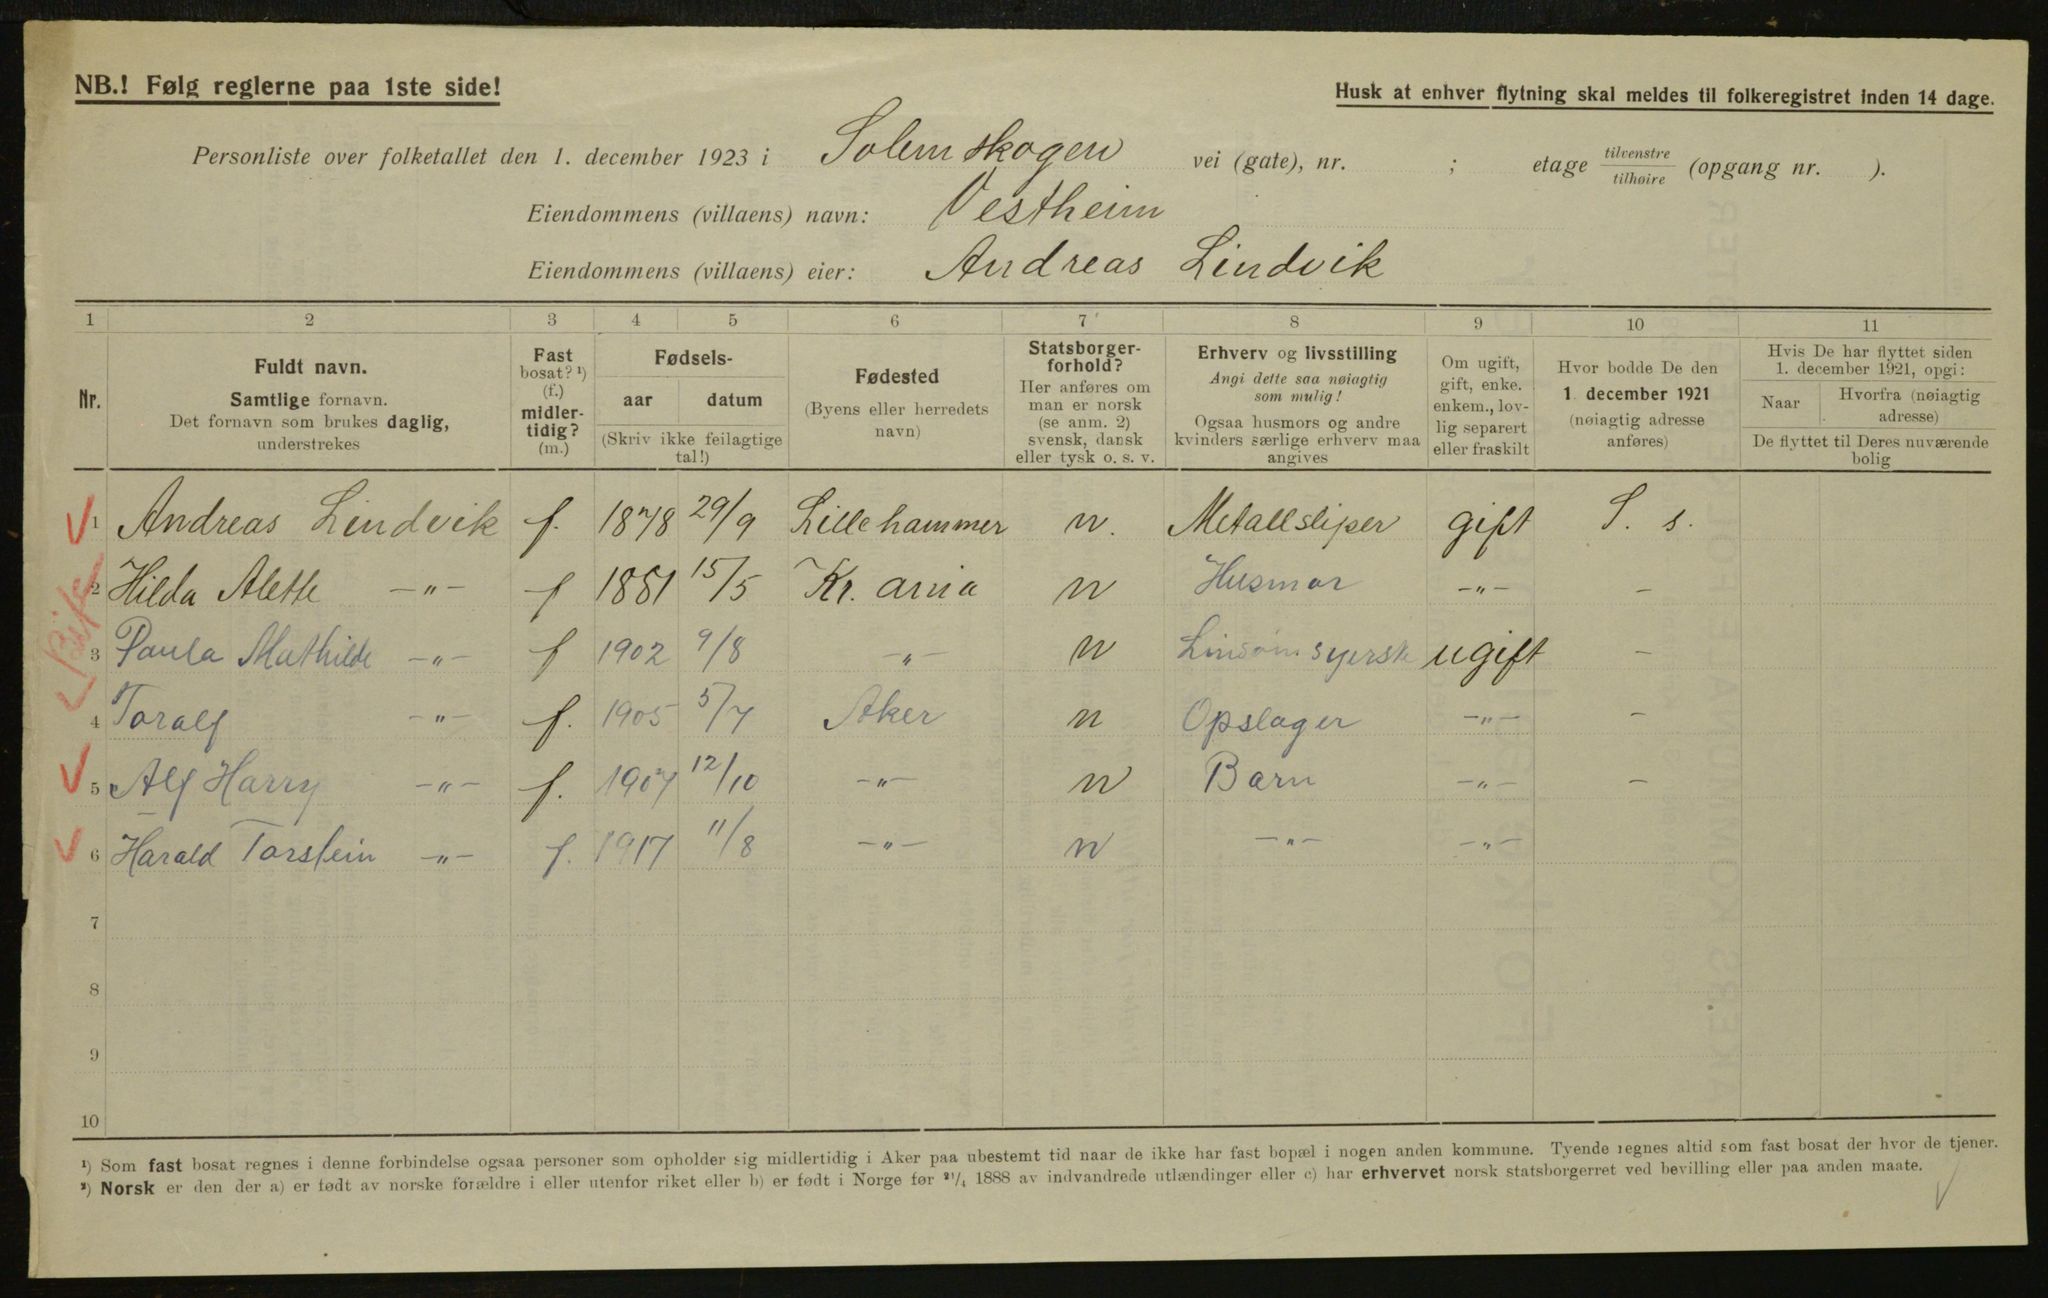 NB.! Følg reglerne paa 1ste side!
Husk at enhver flytning skal meldes til folkeregistret inden 14 dage.
Personliste over folketallet den 1. december 1923 i Solemskogen vei (gate), nr. ; etage tilvenstre/tilhøire (opgang nr. ).
Eiendommens (villaens) navn: Vestheim
Eiendommens (villaens) eier: Andreas Lindvik
1 2 3 4 5 6 7 8 9 10 11
Nr.
Fuldt navn.
Samtlige fornavn.
Det fornavn som brukes daglig,
understrekes
Fast
bosat? ¹)
(f.)
midler-
tidig?
(m.)
Fødsels-
aar datum
(Skriv ikke feilagtige
tal!)
Fødested
(Byens eller herredets
navn)
Statsborger-
forhold?
Her anføres om
man er norsk
(se anm. 2)
svensk, dansk
eller tysk o. s. v.
Erhverv og livsstilling
Angi dette saa nøiagtig
som mulig!
Ogsaa husmors og andre
kvinders særlige erhverv maa
angives
Om ugift,
gift, enke.
enkem., lov-
lig separert
eller fraskilt
Hvor bodde De den
1 december 1921
(nøiagtig adresse
anføres)
Hvis De har flyttet siden
1. december 1921, opgi:
Naar
Hvorfra (nøiagtig
adresse)
De flyttet til Deres nuværende
bolig
1 Andreas Lindvik f. 1878 29/9 Lillehammer n. Metallsliper gift S. s.
2 Hilda Alette —"— f 1881 15/5 Kr.ania n Husmor —"— —
3 Paula Mathilde —"— f 1902 9/8 —"— n syersk ugift —
4 Toralf —"— f. 1905 5/7 Aker n Opslager —"— —
5 Alf Harry —"— f. 1907 12/10 —"— n Barn —"— —
6 Harald Torstein —"— f. 1917 11/8 —"— n —"— —"—
7
8
9
10
¹) Som fast bosat regnes i denne forbindelse ogsaa personer som opholder sig midlertidig i Aker paa ubestemt tid naar de ikke har fast bopæl i nogen anden kommune. Tyende regnes altid som fast bosat der hvor de tjener.
²) Norsk er den der a) er født av norske forældre i eller utenfor riket eller b) er født i Norge før ²¹/₄ 1888 av indvandrede utlændinger eller c) har erhvervet norsk statsborgerret ved bevilling eller paa anden maate.